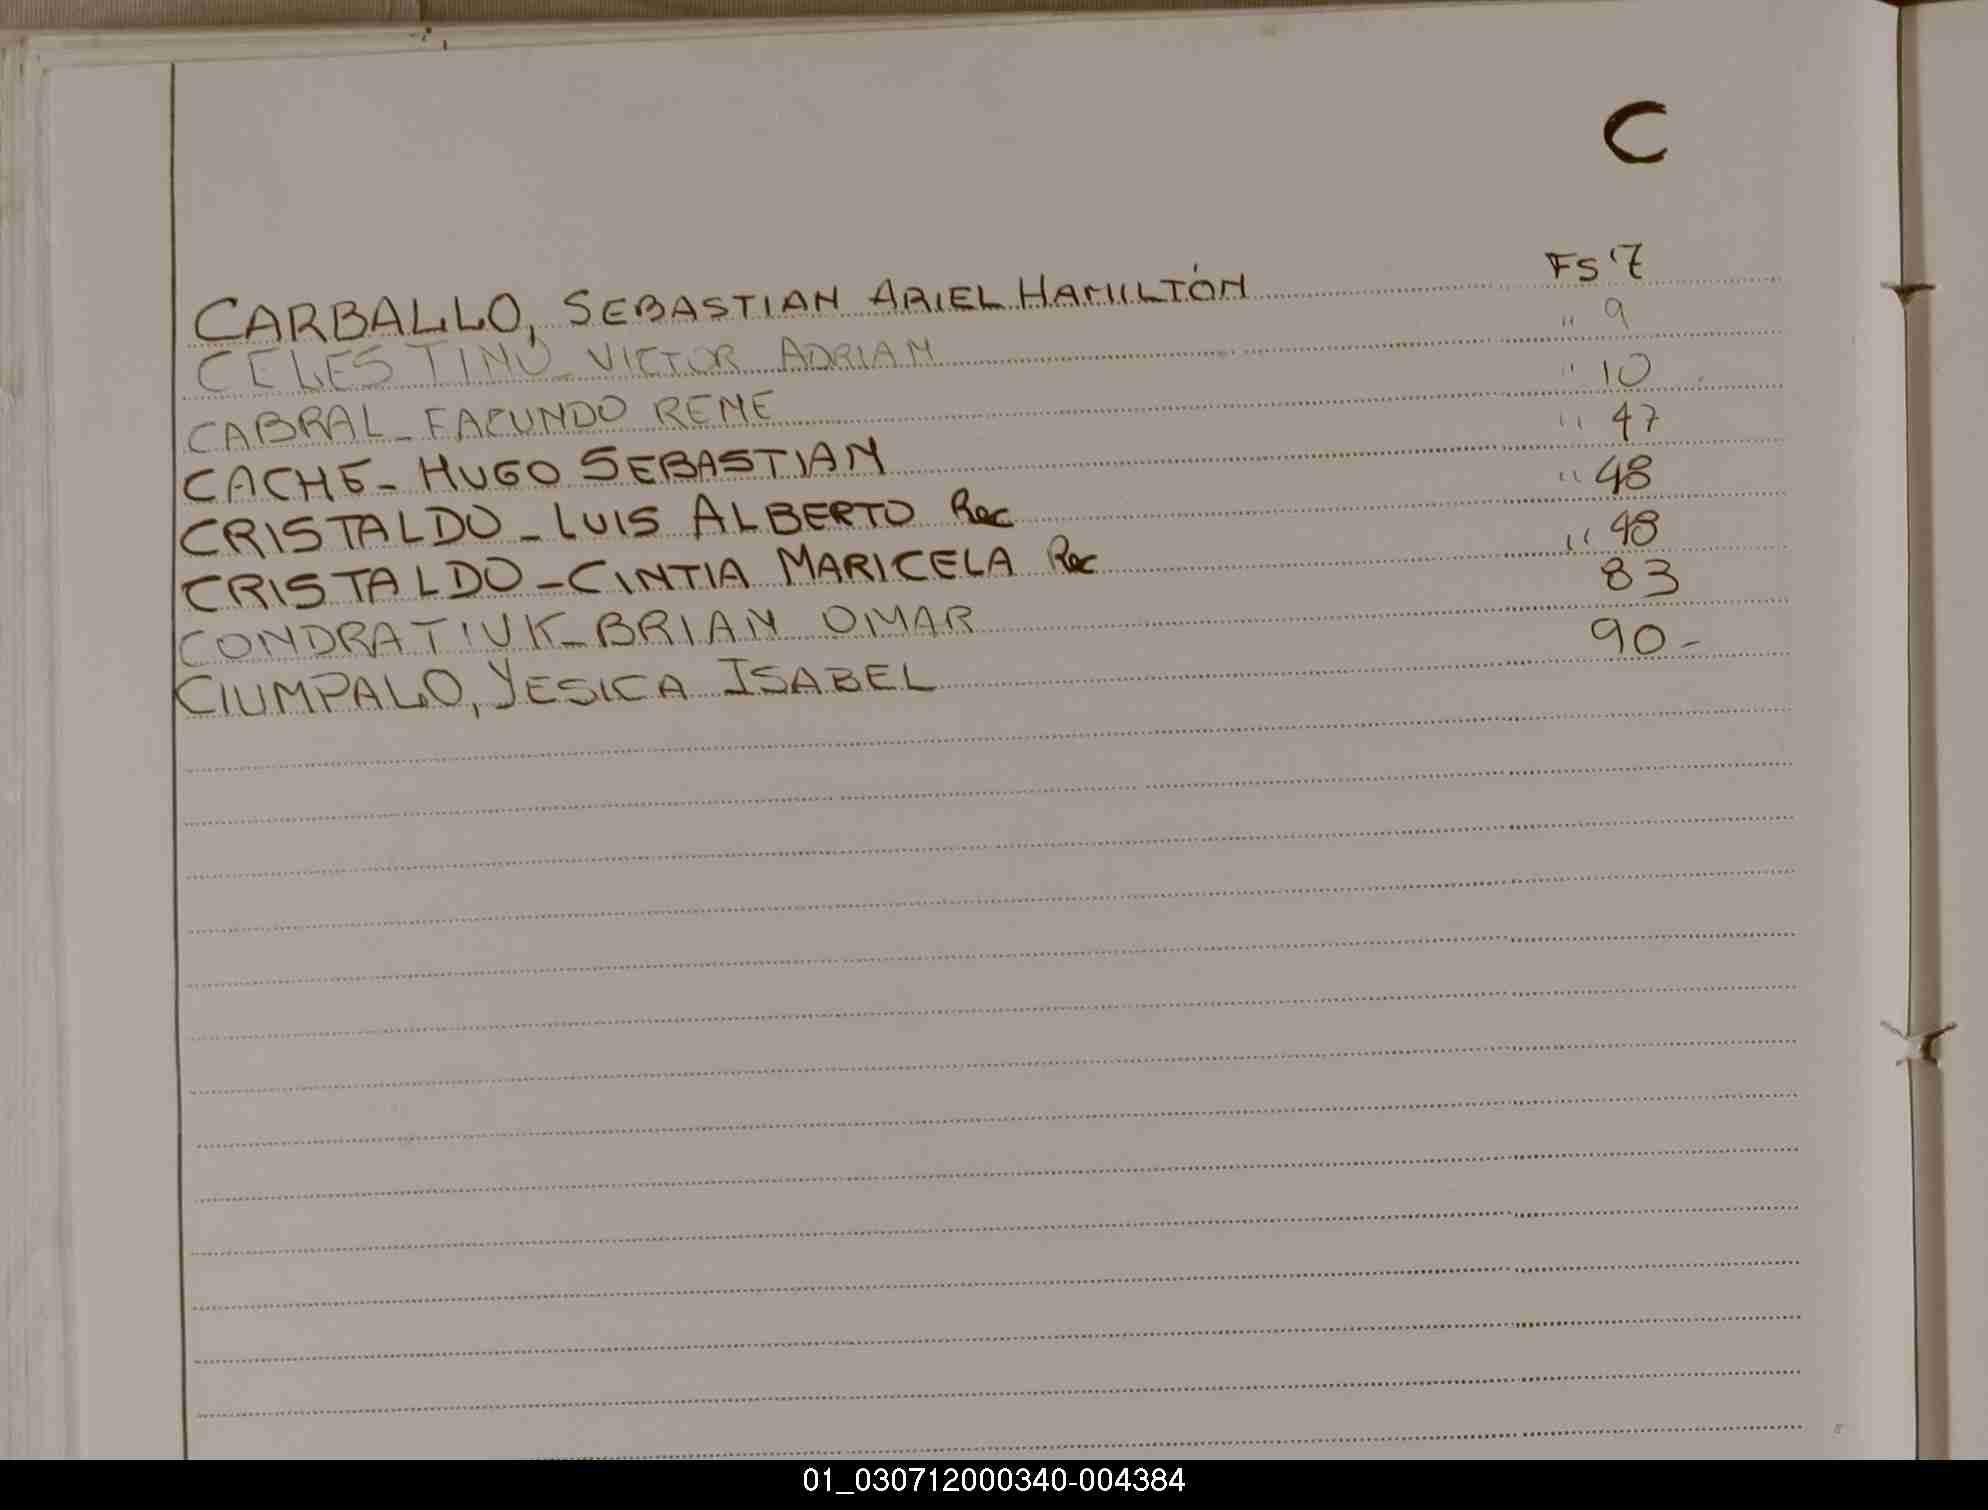 C
CARBALLO, SEBASTIAN ARIEL HAMILTÓN FS 7
CELESTINO - VICTOR ADRIAN " 9
CABRAL - FACUNDO RENE " 10
CACHE - HUGO SEBASTIAN " 47
CRISTALDO - LUIS ALBERTO Rec " 48
CRISTALDO - CINTIA MARICELA Rec " 48
CONDRATIUK - BRIAN OMAR 83
CIUMPALO, YESICA ISABEL 90 -
01_030712000340-004384